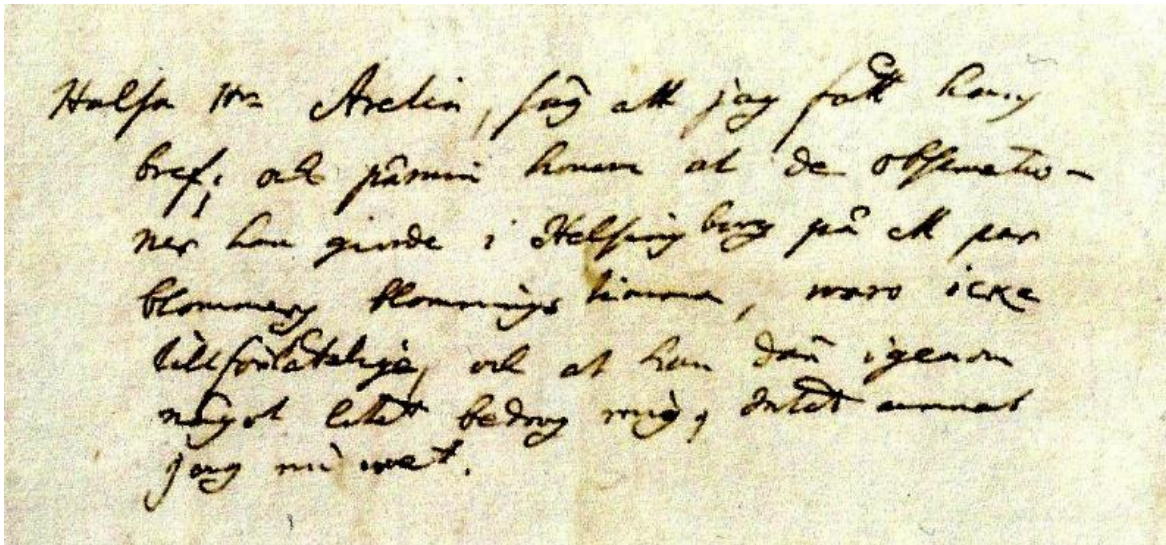 Halsa Hr Arelin, säg att jag fått hans
bref; och påmin honom at de observatio-
ner han giorde i Helsingborg på ett par
blommors blomnings timma, woro icke
tillförlåtelige, och at han där igenom
något litet bedrog mig, intet annat
jag nu wet.